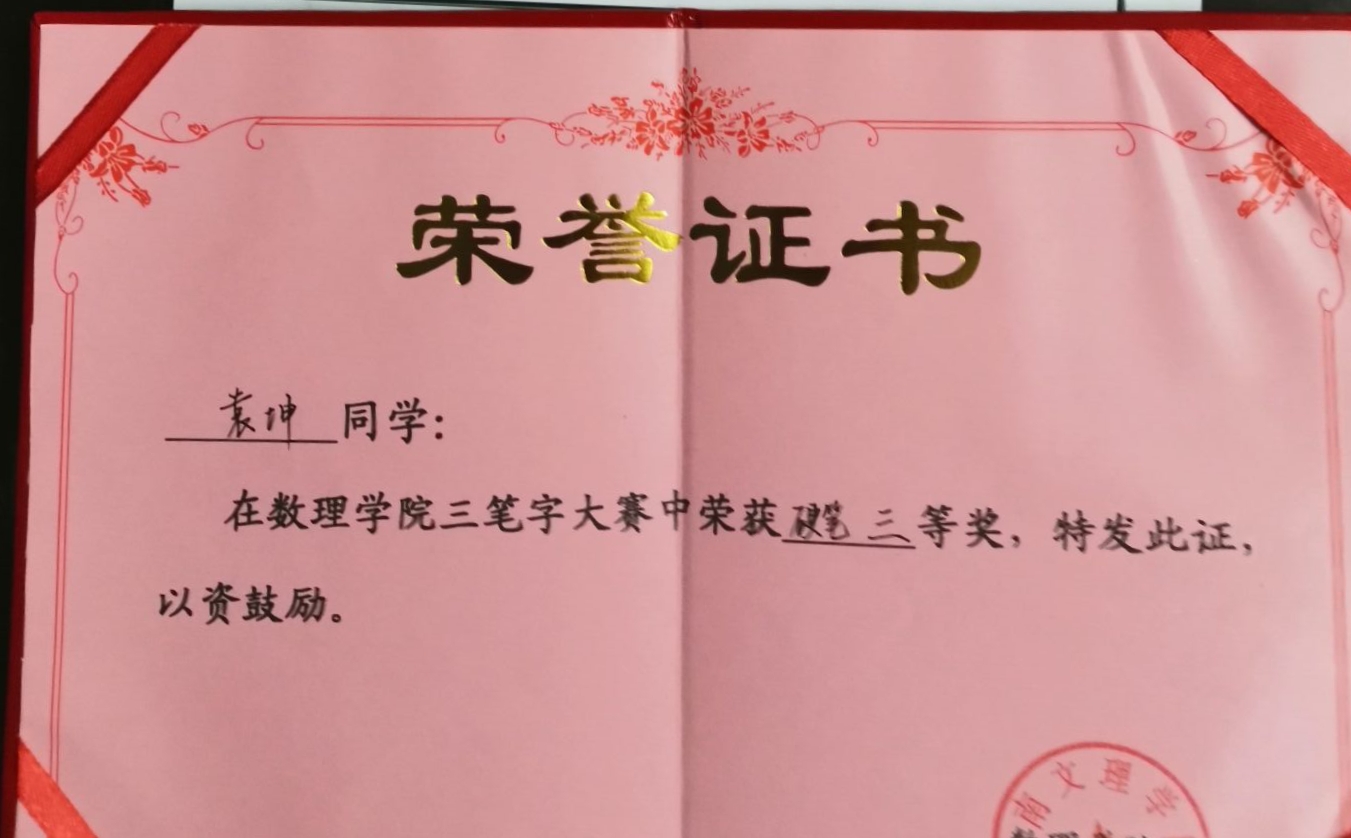 荣誉证书
袁坤同学:
在数理学院三笔字大赛中荣获硬笔 三等奖，特发此证，
以资鼓励。
南文理学